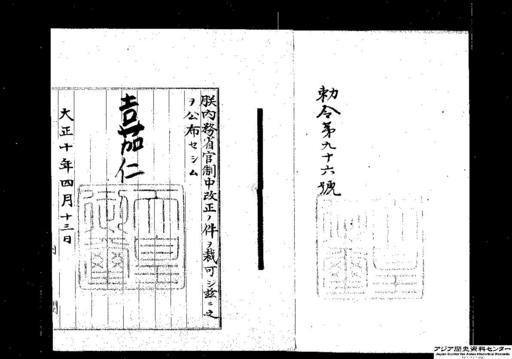 勅令第九十六號
朕內務省官制中改正ノ件ヲ裁可シ茲ニ之
ヲ公布セシム
嘉仁
天皇御璽
大正十年四月十三日
アジア歴史資料センター
Japan Center for Asian Historical Records